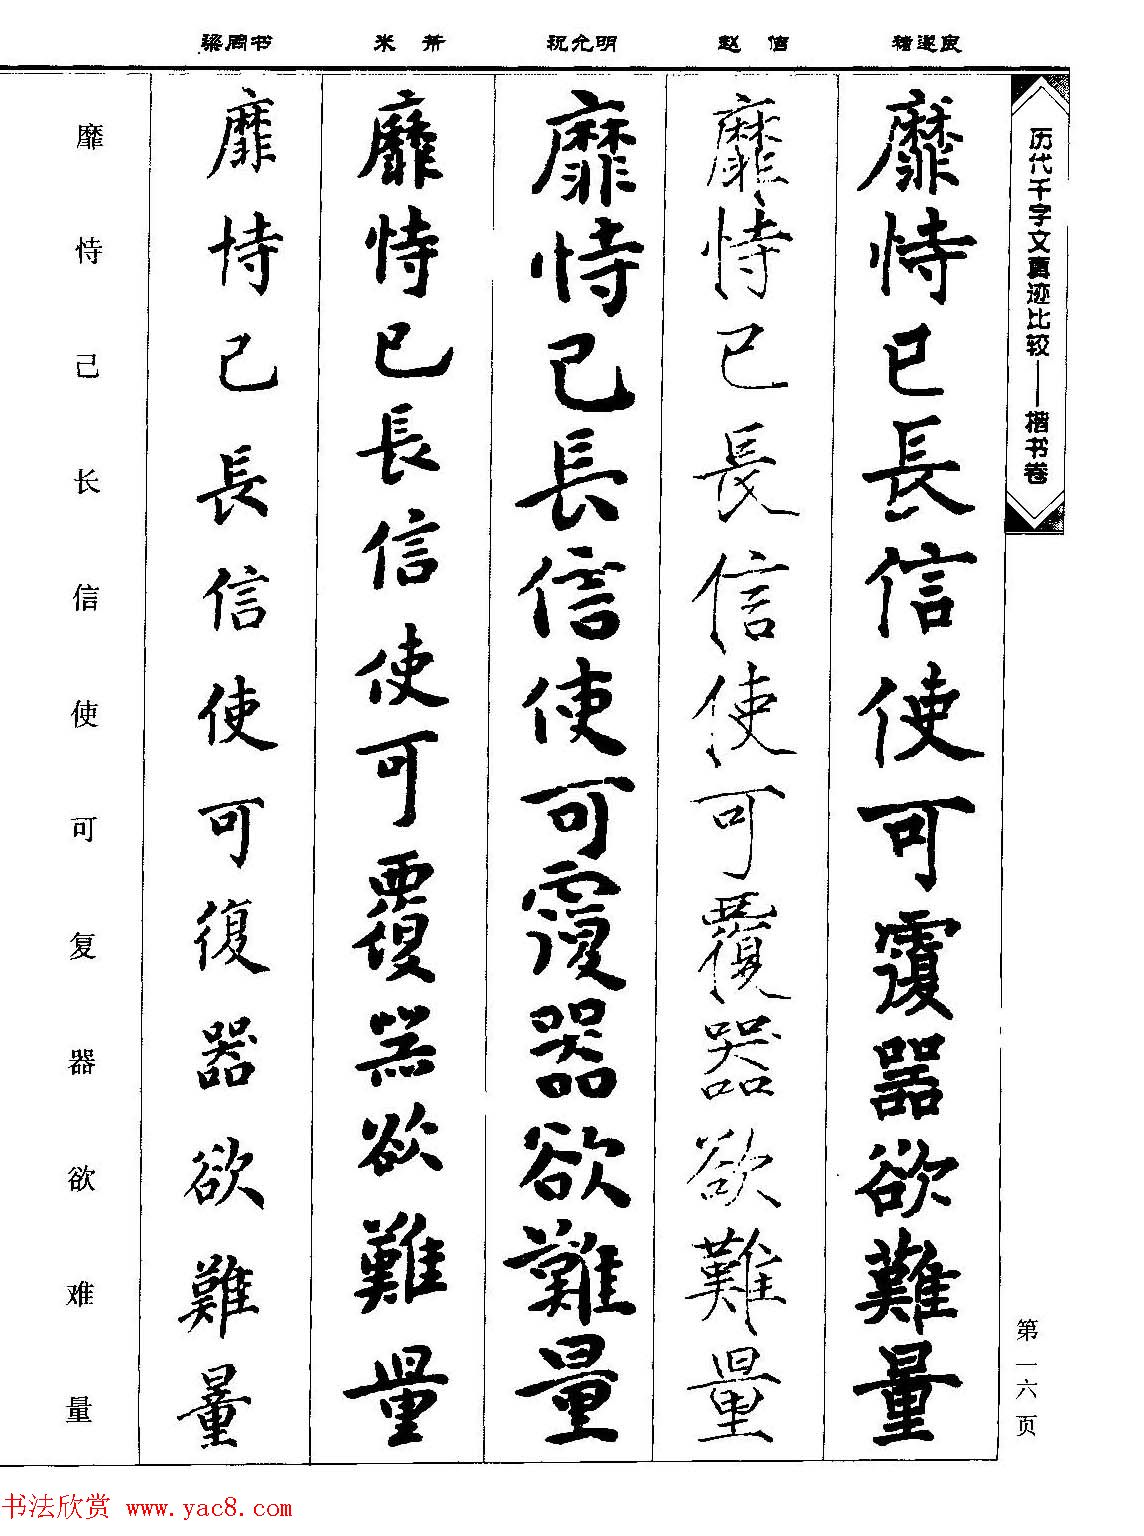 历代千字文真迹比较——楷书卷
第一六页
褚遂良
靡恃己長信使可覆器欲難量
赵佶
靡恃己長信使可覆器欲難量
祝允明
靡恃己長信使可覆器欲難量
米芾
靡恃己長信使可覆器欲難量
梁同书
靡恃己長信使可復器欲難量
靡恃己长信使可复器欲难量
书法欣赏 www.yac8.com